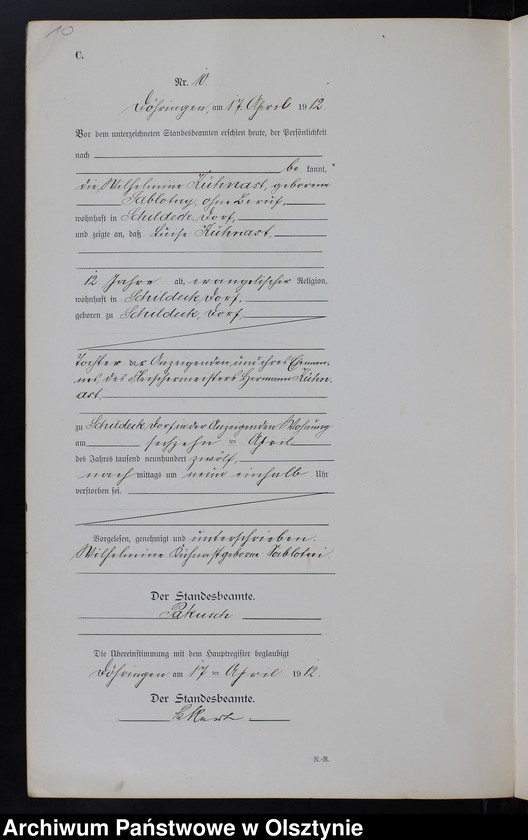 10
C.
Nr. 10.
Döhringen, am 17. April 1912.
Vor dem unterzeichneten Standesbeamten erschien heute, der Persönlichkeit
nach
be kannt,
die Wilhelmine Kühnast, geborene
Sablotny, ohne Beruf,
wohnhaft in Schildeck, Dorf,
und zeigte an, daß Luise Kühnast,
12 Jahre alt, evangelischer Religion,
wohnhaft in Schildeck, Dorf,
geboren zu Schildeck, Dorf,
Tochter der Anzeigenden und ihres Eheman-
nes, des Fleischermeisters Hermann Kühn-
ast,
zu Schildeck, Dorf in der Anzeigenden Wohnung
am sechzehn ten April
des Jahres tausend neunhundert zwölf,
nach mittags um neun einhalb Uhr
verstorben sei.
Vorgelesen, genehmigt und unterschrieben.
Wilhelmine Kühnast geborne Sablotni
Der Standesbeamte.
Pakusch
Die Übereinstimmung mit dem Hauptregister beglaubigt
Döhringen am 17 ten April 1912.
Der Standesbeamte.
R.-R.
Archiwum Państwowe w Olsztynie